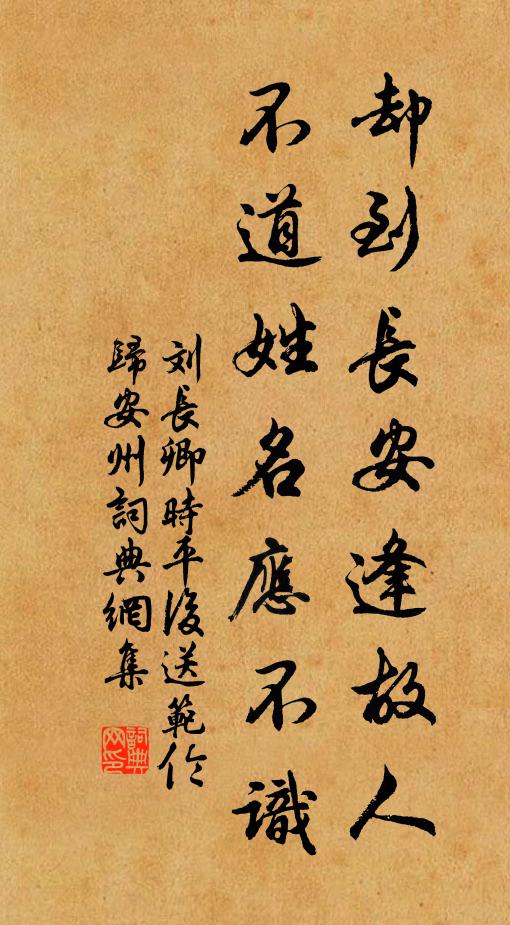 却到長安逢故人
不道姓名應不識
刘長卿時平後送範伦
歸安州詞典網集
詞典
网印